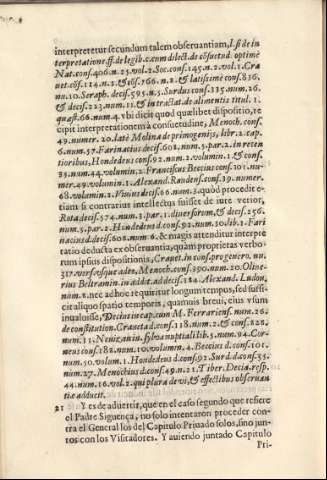 interpretetur secundum talem obseruantiam, l. si de in
terpretatione. ff. de legib. c. cum dilect. de cõsuetud. optimè
Nat. conf. 406. n. 25. vol. 2. Soc. conf. 145. n. 2. vol. 1. Cra
uet. cõs. 114. n. 2. & cõs. 766. n. 2. & latissimè conf. 836.
nu. 10. Seraph. decis. 595. n. 5. Surdus conf. 335. num. 26.
& decis. 223. num. 11. & in tractat. de alimentis titul. 1.
quæst. 66. num. 4. vbi dicit quod quælibet dispositio, re
cipit interpretationem à consuetudine, Menoch. conf.
49. numer. 20. latè Molina de primogenijs, libr. 2. cap.
6. num. 57. Farinacius decis. 608. num. 5. par. 2. in recen
tioribus, Hondedeus conf. 92. num. 2. volumin. 1. & conf.
35. num. 44. volumin. 2. Franciscus Beccius conf. 101. nu-
mer. 49. volumin. 1. Alexand. Raudens. conf. 39. numer.
68. volumin. 2. Vinius decis. 66. num. 3. quòd procedit e-
tiam si contrarius intellectus fuisset de iure verior,
Rota decis. 574. num. 5. par. 1. diuersorum, & decis. 256.
num. 5. par. 2. Hondedeus d. conf. 92. num. 50. lib. 1. Fari
nacius d. decis. 608. num. 6. & magis attenditur interpre
tatio deducta ex obseruantia, quàm proprietas verbo-
rum ipsius dispositionis, Crauet. in cons. pro genero, nu.
317. versusque ades, Menoch. conf. 390. num. 20. Oliue-
rius Beltramin. in addit. ad decis. 124. Alexand. Ludou,
num. 2. nec ad hoc requiritur longum tempus, sed suffi-
cit aliquo spatio temporis, quamuis breui, eius vsum
inualuisse, Decius in cap. cum M. Ferrariens. num. 26.
de constitution. Craueta d. conf. 118. num. 2. & conf. 828.
num. 11. Neuizan. in sylua nuptiali lib. 5. num. 94. Cor-
neus conf. 282. num. 10. volumin. 4. Beccius d. conf. 101.
num. 50. volum. 1. Hondedeus d. conf. 92. Surd. d. conf. 35.
num. 27. Menochius d. conf. 49. n. 21. Tiber. Decia. resp.
44. num. 16. vol. 2. qui plura de vi, & effectibus obseruan
tiæ adducit.
21 Y es de aduertir, que en el caso segundo que refiere
el Padre Siguença, no solo intentaron proceder con-
tra el General los del Capitulo Priuado solos, sino jun-
tos con los Visitadores. Y auiendo juntado Capitulo
Pri-